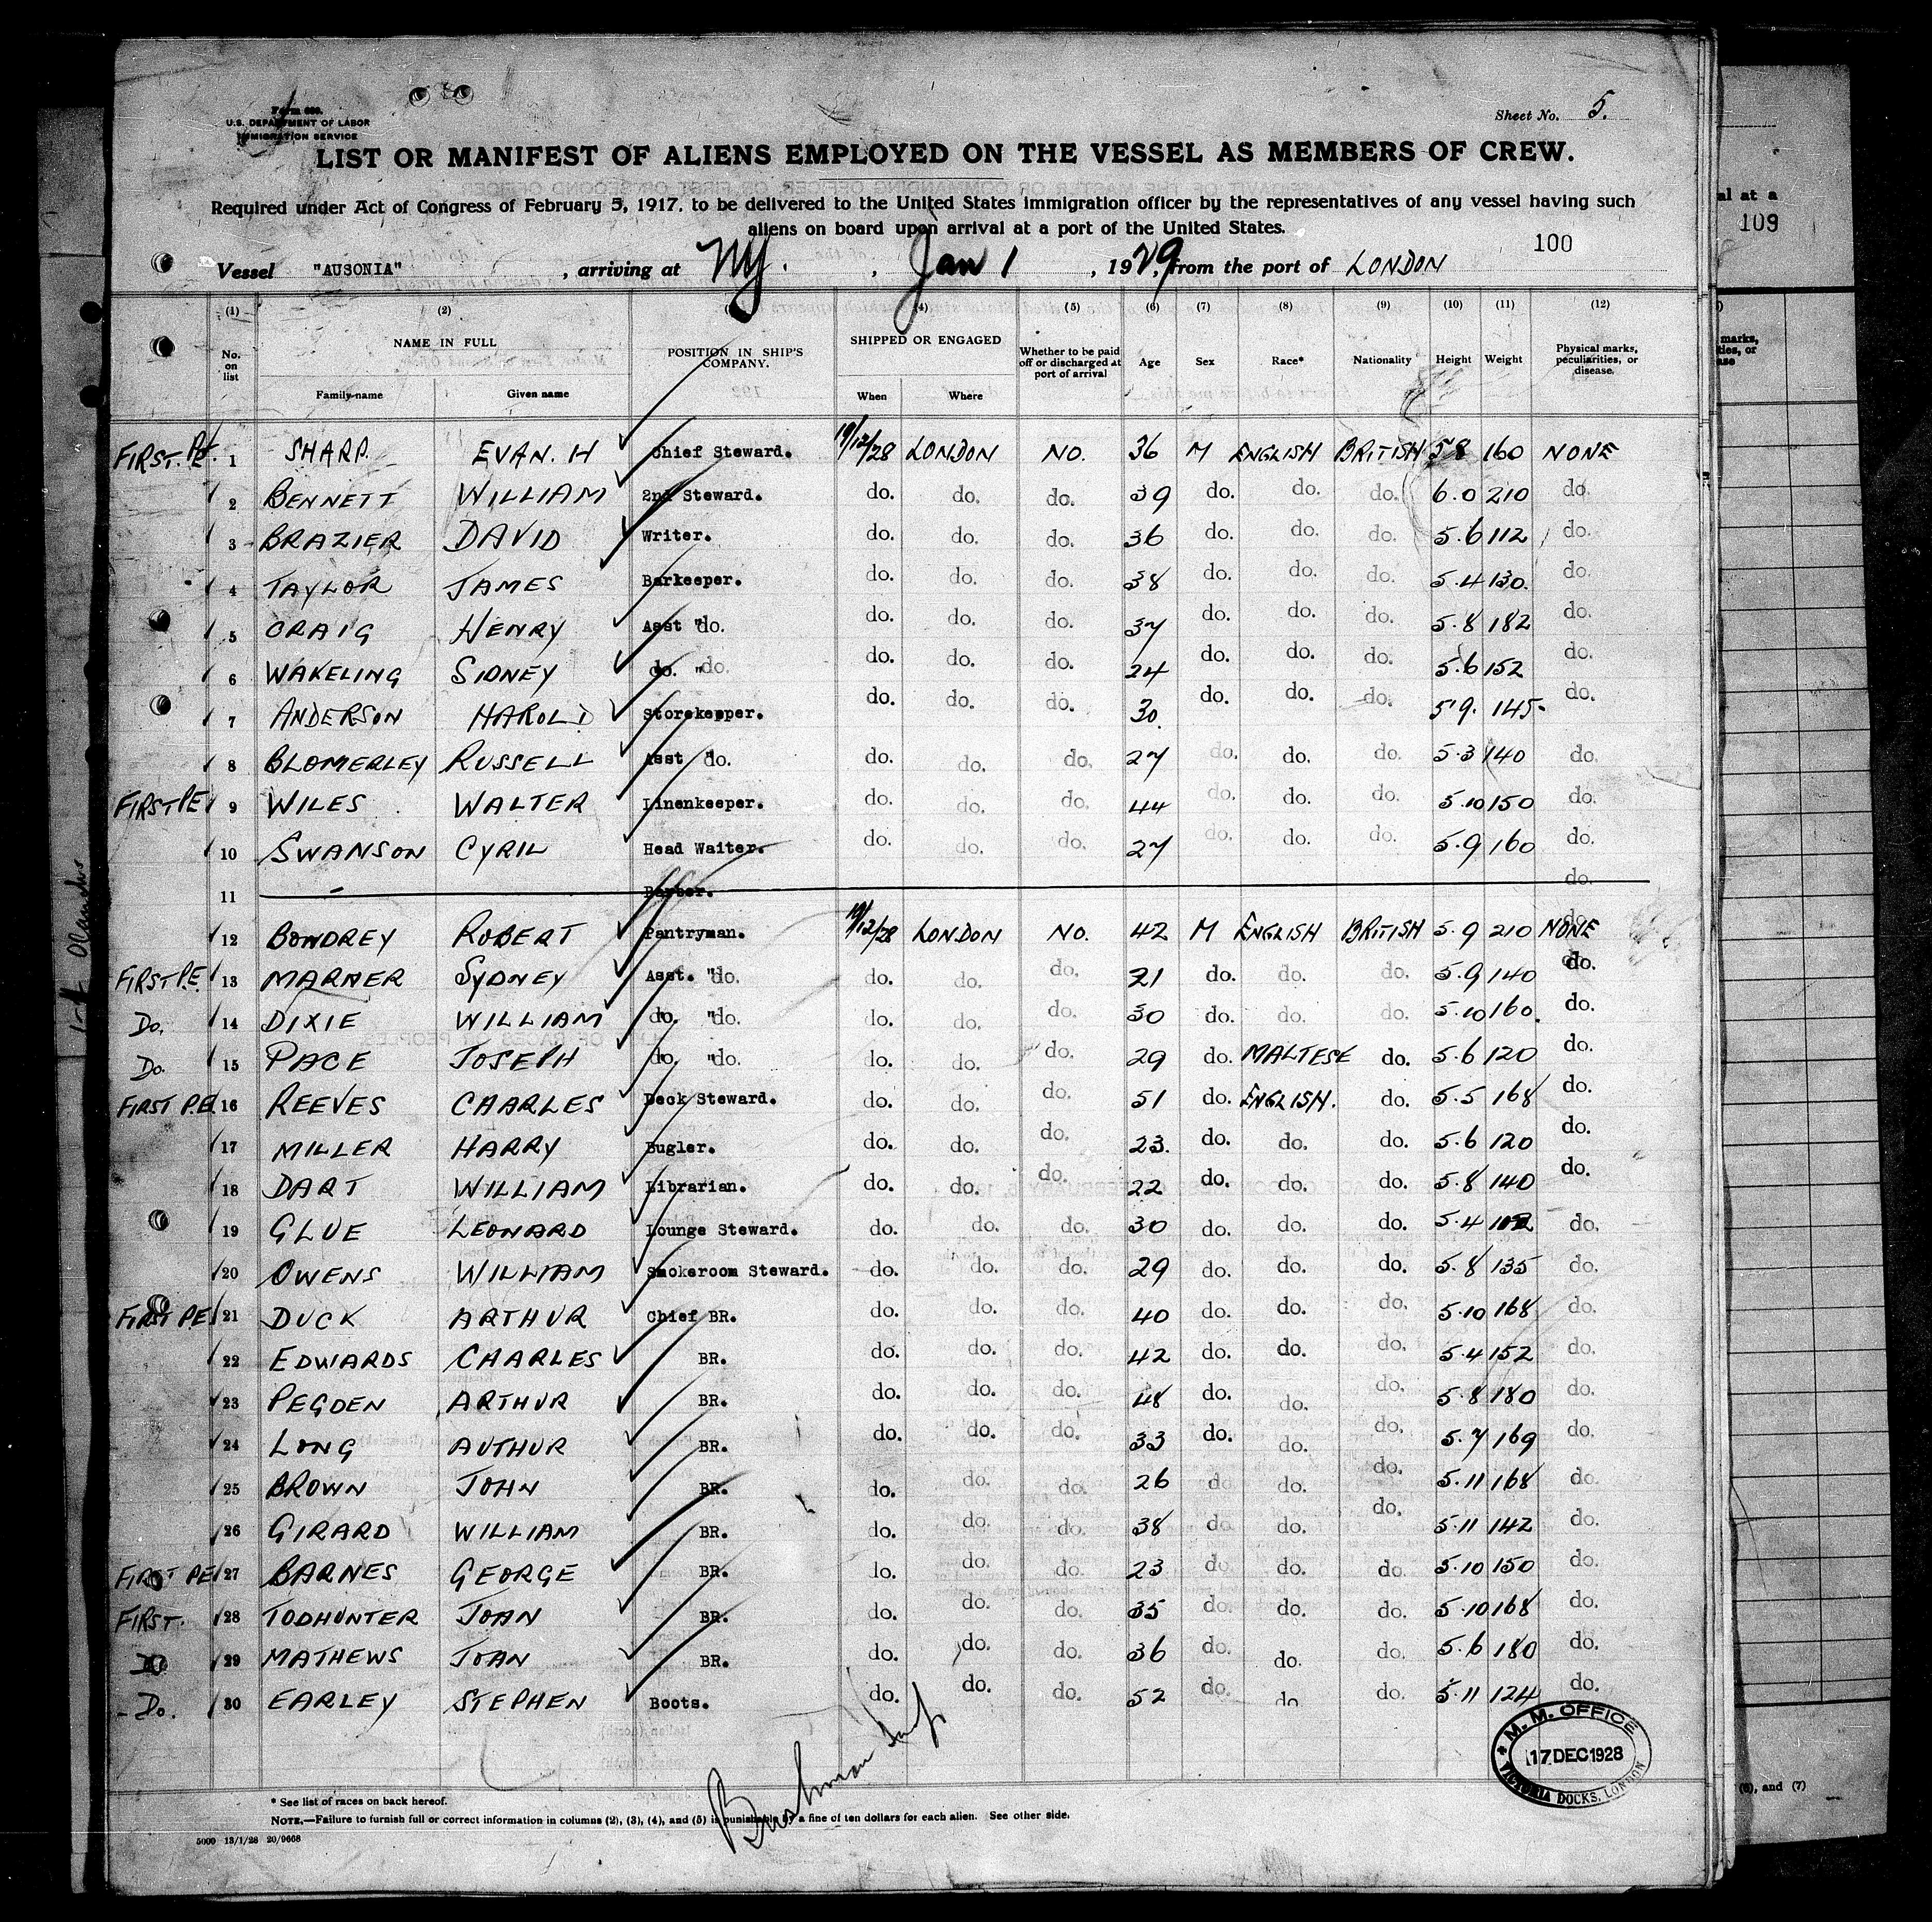 Sheet No. 5.
Form 689.
U.S. DEPARTMENT OF LABOR
IMMIGRATION SERVICE
LIST OR MANIFEST OF ALIENS EMPLOYED ON THE VESSEL AS MEMBERS OF CREW.
Required under Act of Congress of February 5, 1917, to be delivered to the United States immigration officer by the representatives of any vessel having such
aliens on board upon arrival at a port of the United States.
al at a
109
100
Vessel "AUSONIA", arriving at NY., Jan 1, 1929, from the port of LONDON
(1) (2) (4) (5) (6) (7) (8) (9) (10) (11) (12)
No. on list NAME IN FULL POSITION IN SHIP'S COMPANY. SHIPPED OR ENGAGED Whether to be paid off or discharged at port of arrival Age Sex Race* Nationality Height Weight Physical marks, peculiarities, or disease.
Family name Given name When Where
FIRST. P.E. 1 SHARP. EVAN. H Chief Steward. 19/12/28 LONDON NO. 36 M ENGLISH BRITISH 5 8 160 NONE
2 BENNETT WILLIAM 2nd Steward. do. do. do. 39 do. do. do. 6.0 210 do.
3 BRAZIER DAVID Writer. do. do. do. 36 do. do. do. 5.6 112 do.
4 TAYLOR JAMES Barkeeper. do. do. do. 38 do. do. do. 5.4 130. do.
5 CRAIG HENRY Asst "do. do. do. do. 37 do. do. do. 5.8 182 do.
6 WAKELING SIDNEY do. "do. do. do. do. 24 do. do. do. 5.6 152 do.
7 ANDERSON HAROLD Storekepper. do. do. do. 30. do. do. do. 5'9. 145. do.
8 BLOMERLEY RUSSELL Asst "do. do. do. do. 27 do. do. do. 5.3 140 do.
FIRST P.E 9 WILES WALTER Linenkeeper. do. do. do. 44 do. do. do. 5.10 150 do.
10 SWANSON CYRIL Head Waiter. do. do. do. 27 do. do. do. 5.9 160 do.
11 Barber. do.
12 BONDREY ROBERT Pantryman. 19/12/28 LONDON NO. 42 M ENGLISH BRITISH 5.9 210 NONE
FIRST P.E. 13 MARNER SYDNEY Asst. "do. do. do. do. 21 do. do. do. 5.9 140 do.
Do. 14 DIXIE WILLIAM do. "do. do. do. do. 30 do. do. do. 5.10 160. do.
Do. 15 PACE JOSEPH do. "do. do. do. do. 29 do. MALTESE do. 5.6 120 do.
FIRST P.E. 16 REEVES CHARLES Deck Steward. do. do. do. 51 do. ENGLISH. do. 5.5 168 do.
17 MILLER HARRY Bugler. do. do. do. 23. do. do. do. 5.6 120 do.
18 DART WILLIAM Librarian. do. do. do. 22 do. do. do. 5.8 140 do.
19 GLUE LEONARD Lounge Steward. do. do. do. 30 do. do. do. 5.4 do.
20 OWENS WILLIAM Smokeroom Steward. do. do. do. 29 do. do. do. 5.8 135 do.
FIRST PE 21 DUCK ARTHUR Chief BR. do. do. do. 40 do. do. do. 5.10 168 do.
22 EDWARDS CHARLES BR. do. do. do. 42 do. do. do. 5.4 152 do.
23 PEGDEN ARTHUR BR. do. do. do. 48 do. do. do. 5.8 180 do.
24 LONG AUTHUR BR. do. do. do. 33 do. do. do. 5.7 169 do.
25 BROWN JOHN BR. do. do. do. 26 do. do. do. 5.11 168 do.
26 GIRARD WILLIAM BR. do. do. do. 38 do. do. do. 5.11 142 do.
FIRST PE 27 BARNES GEORGE BR. do. do. do. 23 do. do. do. 5.10 150 do.
FIRST. 28 TODHUNTER JOAN BR. do. do. do. 35 do. do. do. 5.10 168 do.
Do 29 MATHEWS JOAN BR. do. do. do. 36 do. do. do. 5.6 180 do.
Do. 30 EARLEY STEPHEN Boots. do. do. do. 52 do. do. do. 5.11 124 do.
M. M. OFFICE
17 DEC 1928
VICTORIA DOCKS, LONDON
* See list of races on back hereof.
NOTE.—Failure to furnish full or correct information in columns (2), (3), (4), and (5) is punishable by a fine of ten dollars for each alien. See other side.
5000 13/1/28 20/9668
(6), and (7)